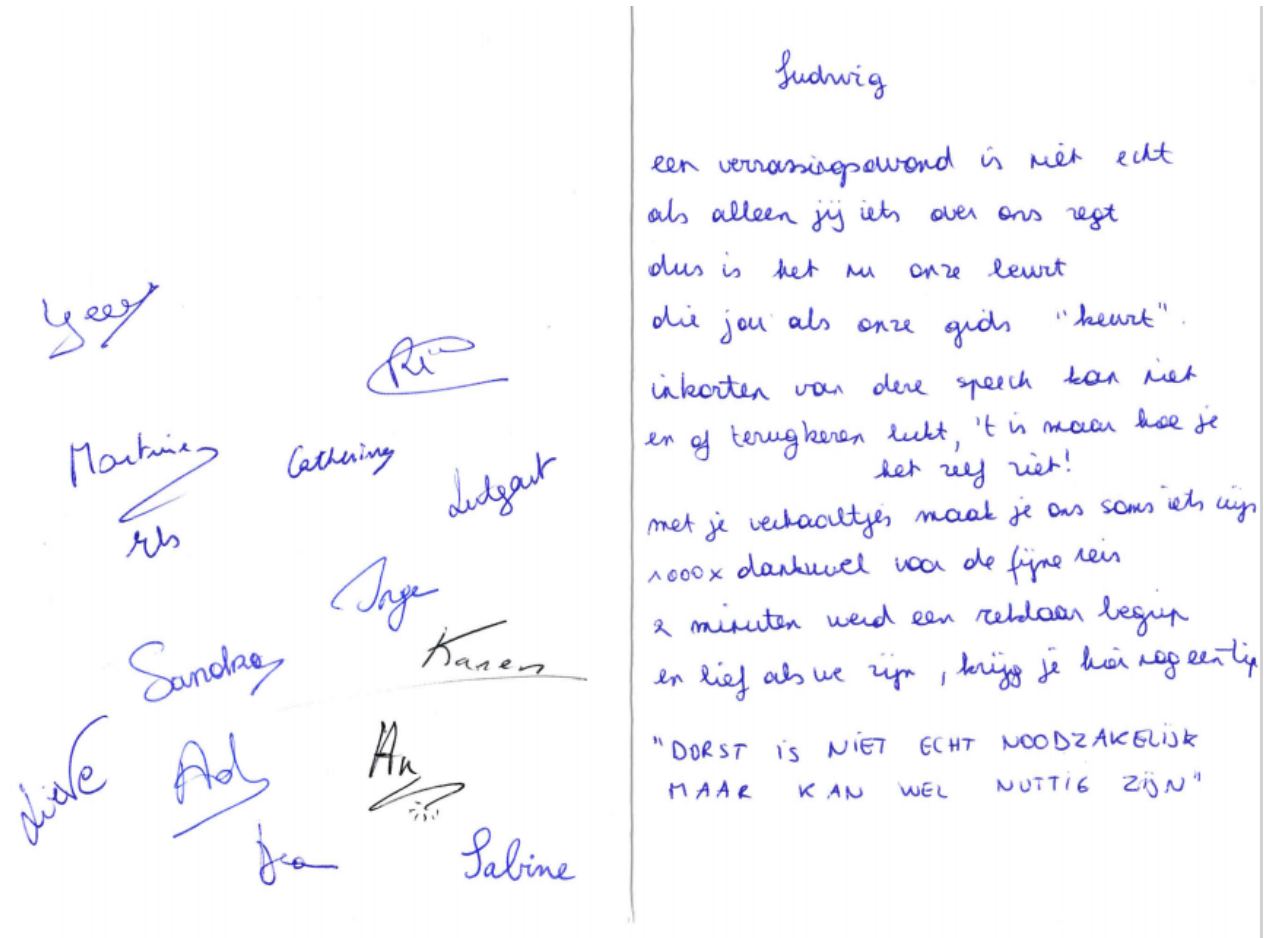 Ria
Martine
Catherine
Ludgart
Els
Inge
Karen
Sandra
Lieve
Ad
An
Sabine
Ludwig
een verrassingsavond is niet echt
als alleen jij iets over ons zegt
dus is het nu onze beurt
die jou als onze gids "keurt".
inkorten van deze speech kan niet
en of terugkeren lukt, 't is maar hoe je
het zelf ziet!
met je verhaaltjes maak je ons soms iets wijs
1000x dankuwel voor de fijne reis
2 minuten werd een rekbaar begrip
en lief als we zijn, krijg je hier nog een tip
"DORST IS NIET ECHT NOODZAKELIJK
MAAR KAN WEL NUTTIG ZIJN"